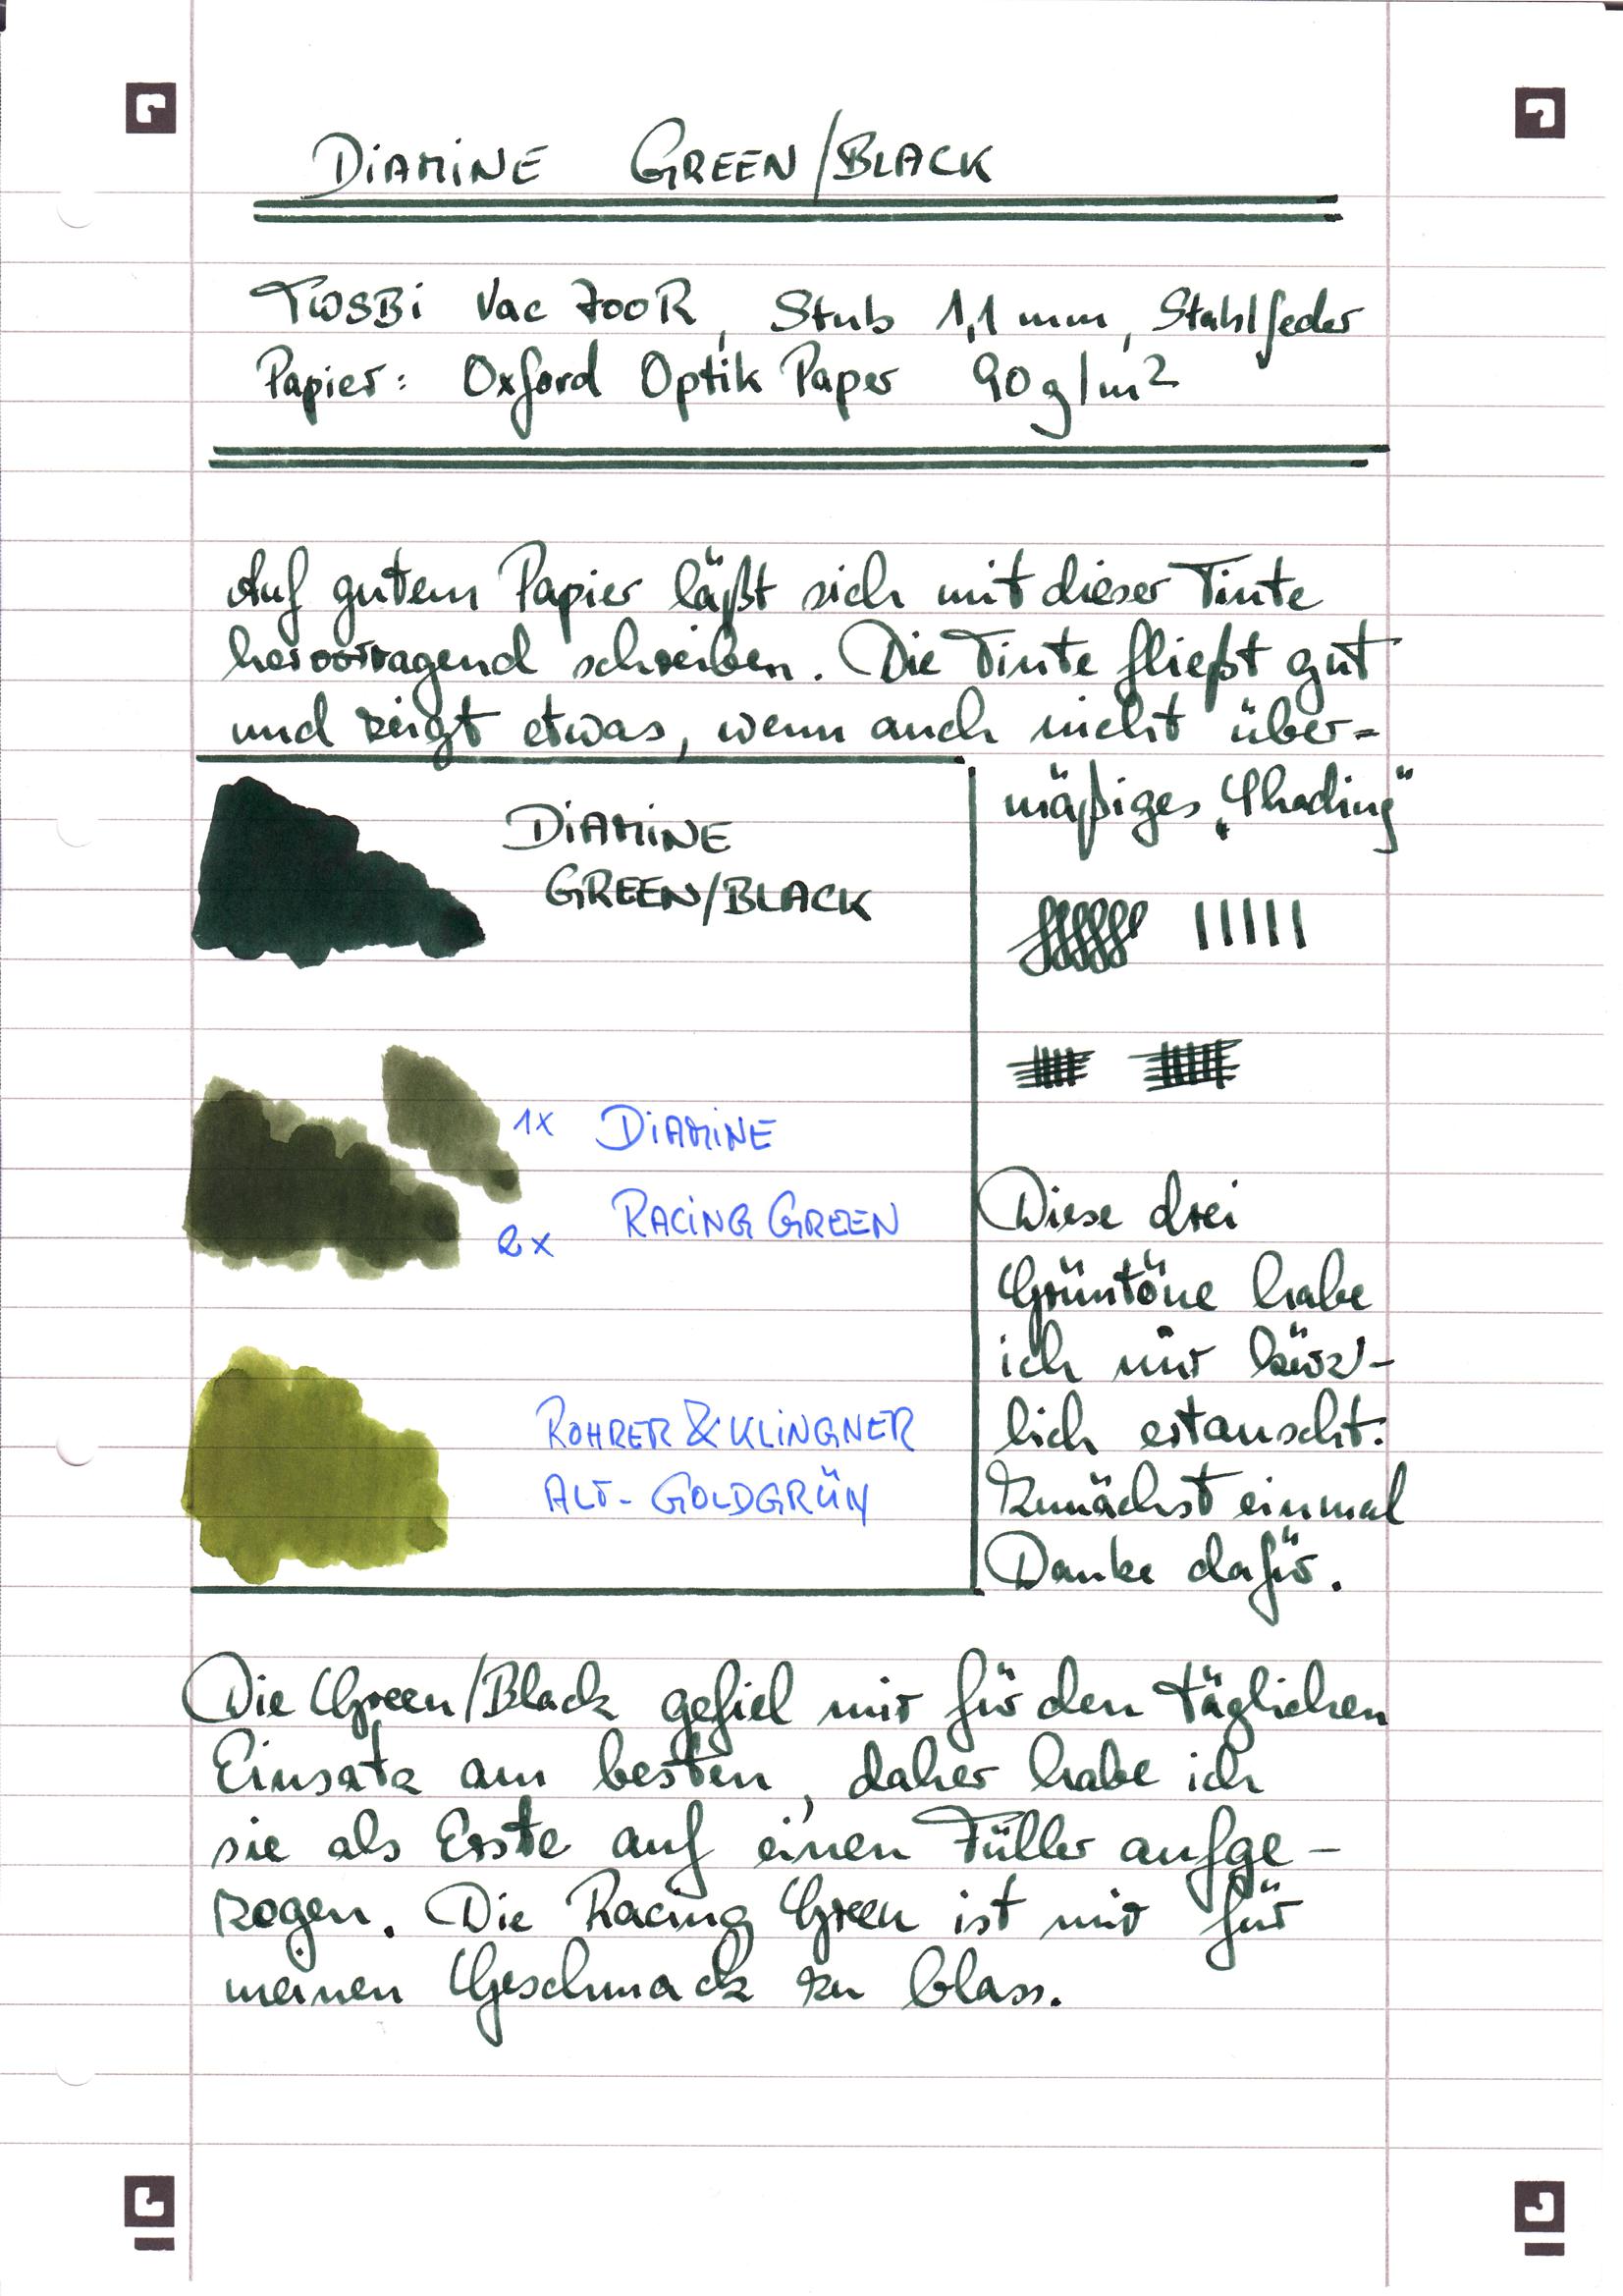 DIAMINE GREEN/BLACK
TWSBI Vac 700R, Stub 1,1 mm, Stahlfeder
Papier: Oxford Optik Paper 90 g/m²
Auf gutem Papier läßt sich mit dieser Tinte
hervorragend schreiben. Die Tinte fließt gut
und zeigt etwas, wenn auch nicht über-
mäßiges „Shading"
DIAMINE
GREEN/BLACK
1x DIAMINE
RACING GREEN
2x
ROHRER & KLINGNER
ALT-GOLDGRÜN
Diese drei
Grüntöne habe
ich mir kürz-
lich ertauscht.
Zunächst einmal
Danke dafür.
Die Green/Black gefiel mir für den täglichen
Einsatz am besten, daher habe ich
sie als Erste auf einen Füller aufge-
zogen. Die Racing Green ist mir für
meinen Geschmack zu blass.